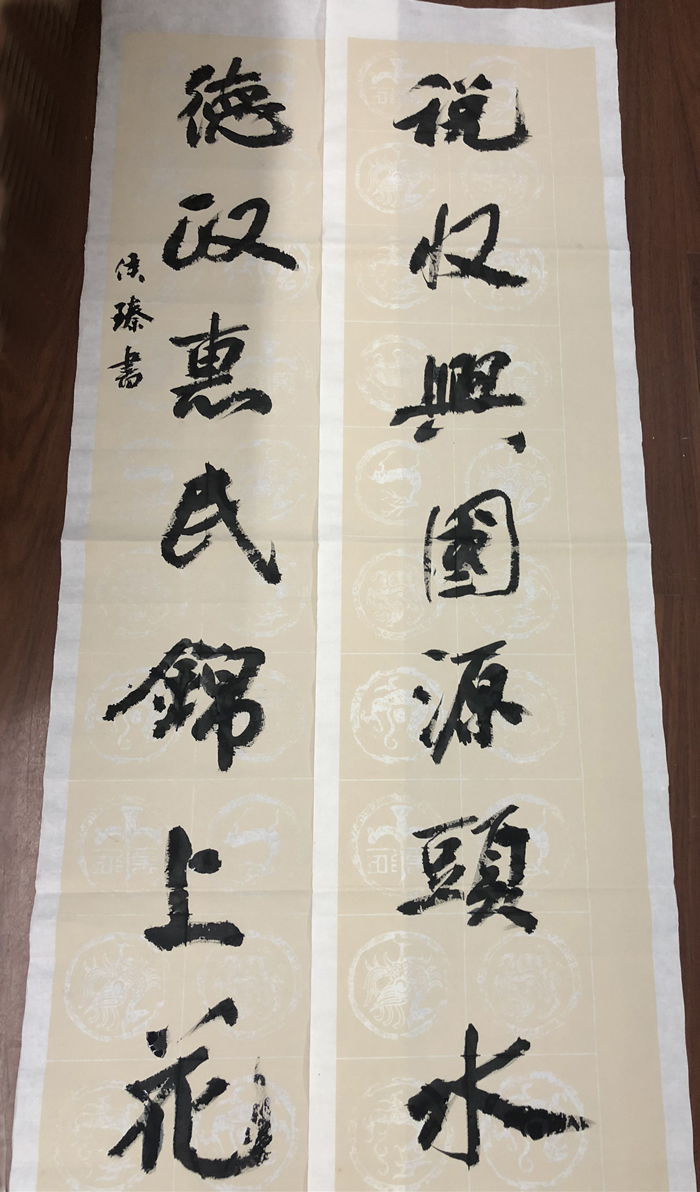 税收興國源頭水
德政惠民錦上花
侯臻書